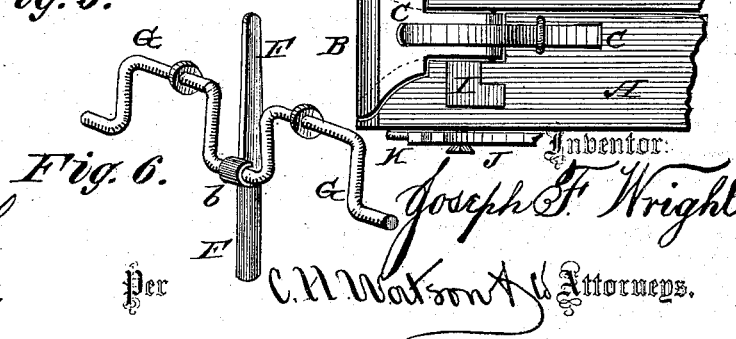 G F B C C
L A
K J Inventor:
Fig. 6. b G Joseph F. Wright
F
Per C. H. Watson & Co Attorneys.